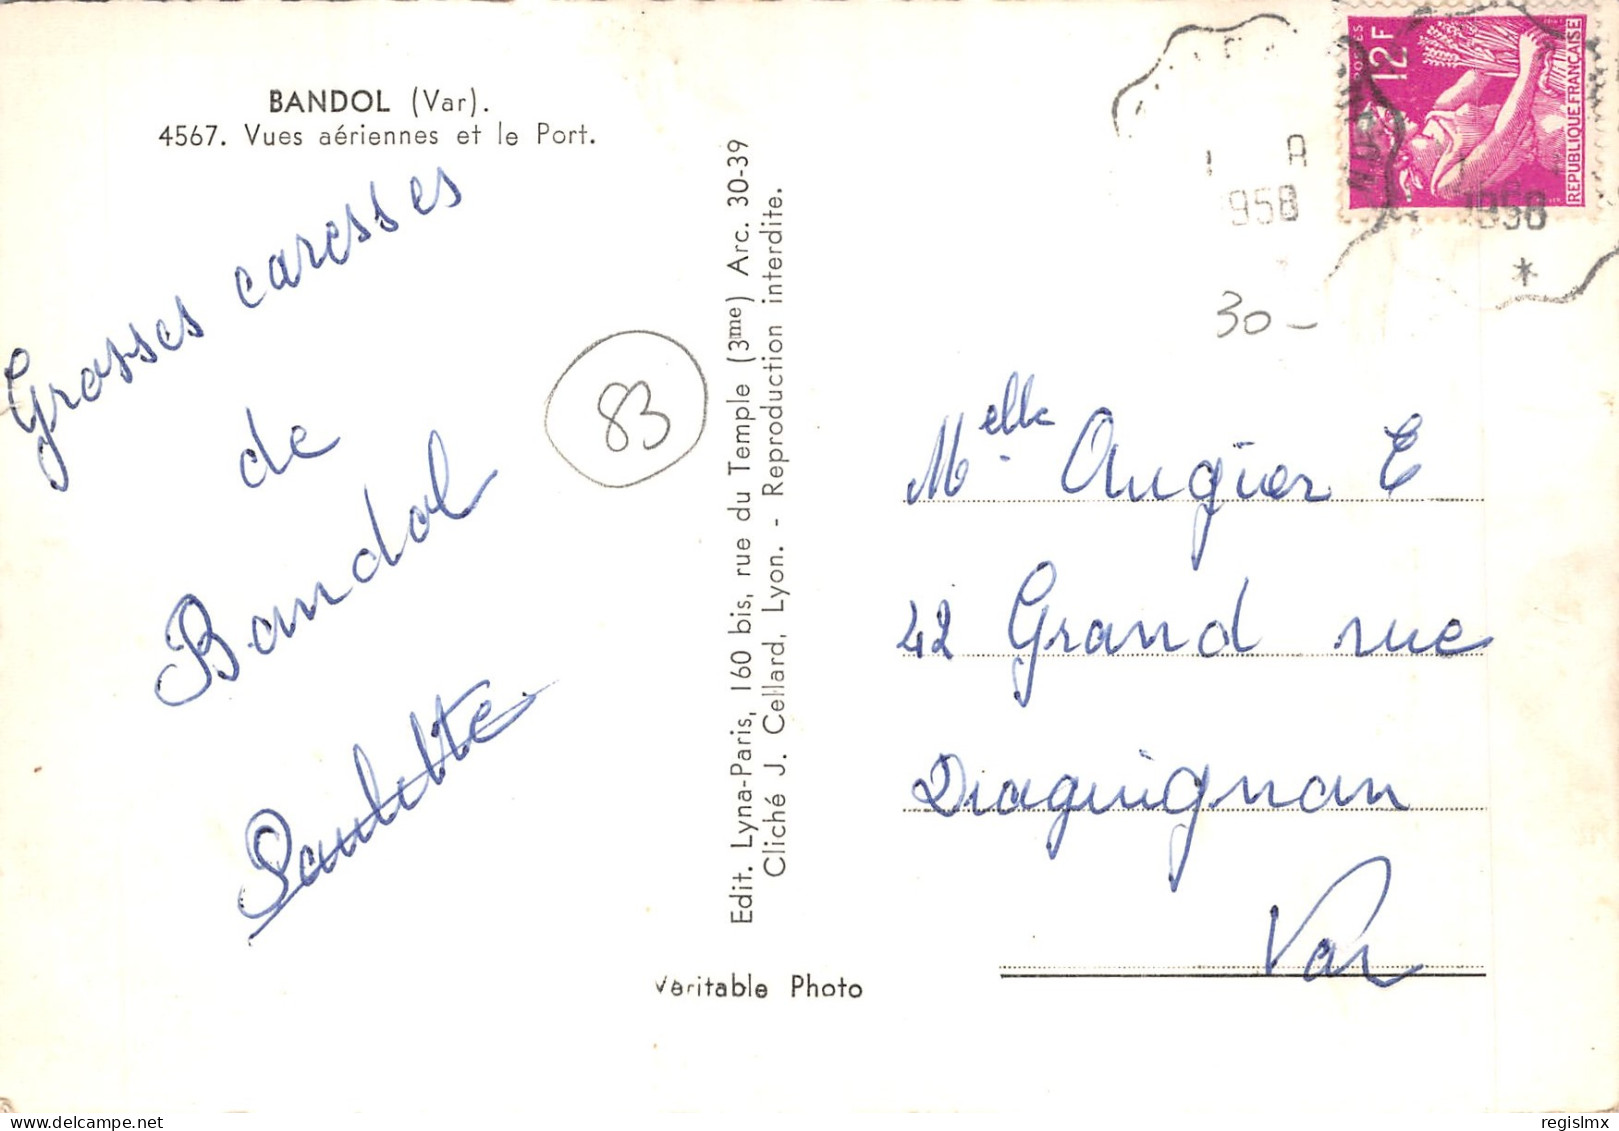 BANDOL (Var).
4567. Vues aériennes et le Port.
Grosses caresses
de
Bandol
Paulette
83
Edit. Lyna-Paris, 160 bis, rue du Temple (3me) Arc. 30-39
Cliché J. Cellard, Lyon. - Reproduction interdite.
Véritable Photo
POSTES
12F
REPUBLIQUE FRANÇAISE
1 A
1958
1958
30-
Melle. Augier E
42 Grand rue
Draguignan
Var
regislmx